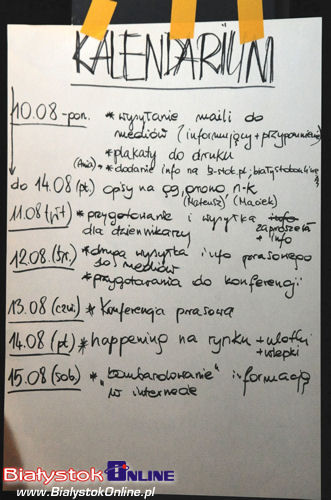 KALENDARIUM
10.08 - pon. * wysyłanie maili do
mediów (informujący + przypomnienie)
* plakaty do druku
(Ania) * dodanie info na b-stok.pl; białystokonline
do 14.08 (pt) opisy na gg, grono, n-k
(Mateusz) (Maciek)
11.08 (wt) * przygotowanie i wysyłka zaproszeń
dla dziennikarzy + info
12.08 (śr.) * druga wysyłka info prasowego
do mediów
* przygotowania do konferencji
13.08 (czw.) * Konferencja prasowa
14.08 (pt) * happening na rynku + ulotki
+ wlepki
15.08 (sob) * "bombardowanie" informacją
w internecie
Białystok ONLINE
www.BialystokOnline.pl